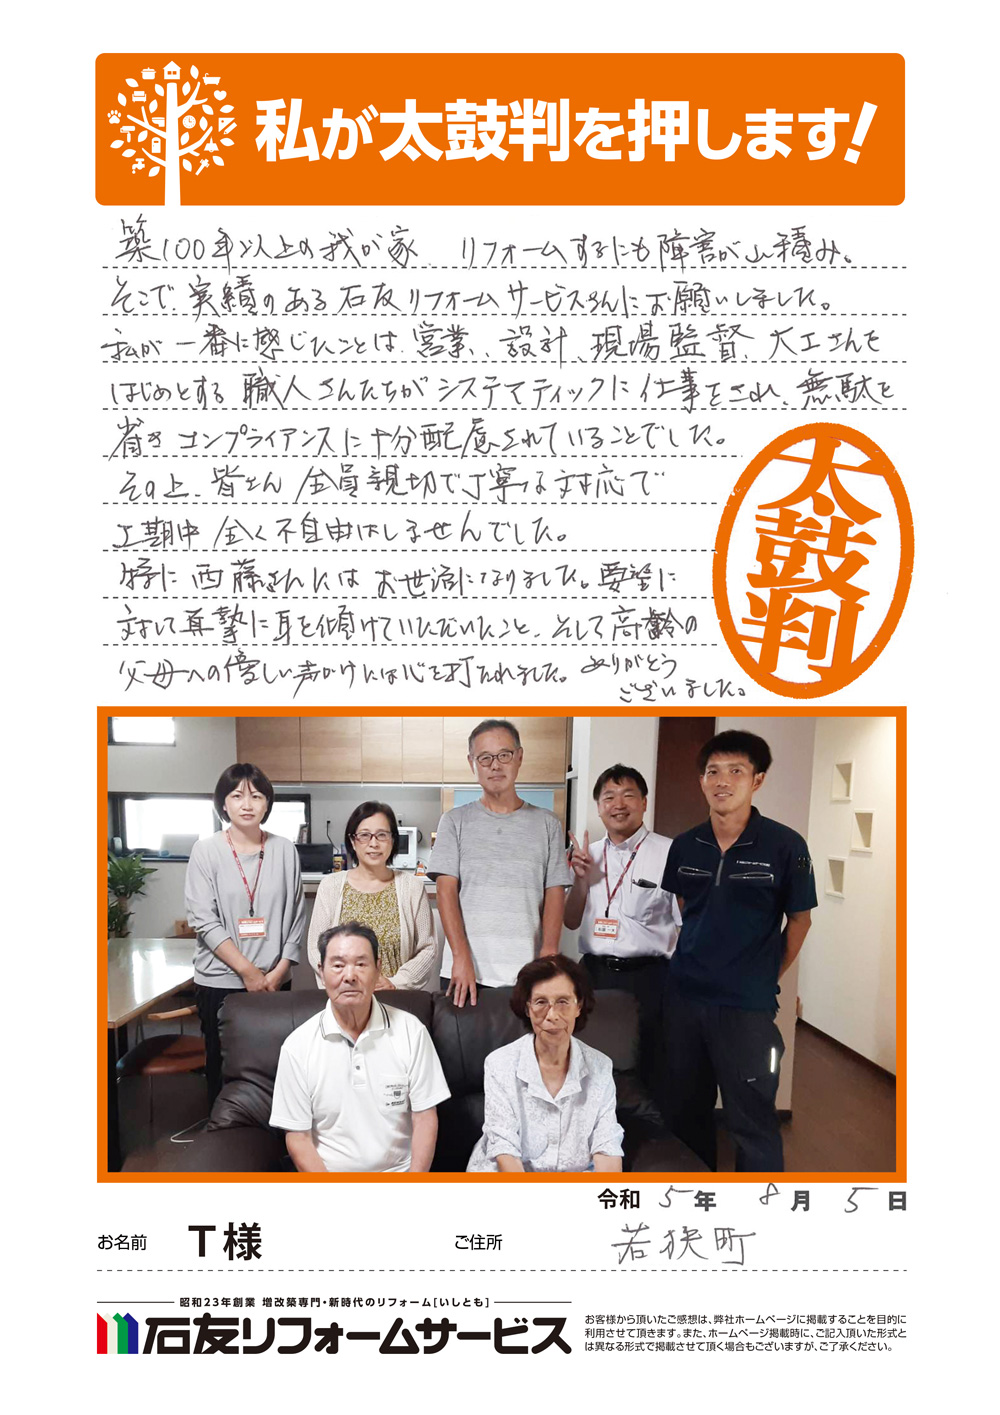 私が太鼓判を押します!
築100年以上の我が家、リフォームするにも障害が山積み。
そこで、実績のある石友リフォームサービスさんにお願いしました。
私が一番に感じたことは、営業、設計、現場監督、大工さんを
はじめとする職人さんたちがシステマティックに仕事をされ、無駄を
省きコンプライアンスに十分配慮されていることでした。
その上、皆さん全員親切で丁寧な対応で
工期中全く不自由はしませんでした。
特に西藤さんにはお世話になりました。要望に
対して真摯に耳を傾けていただいたこと、そして高齢の
父母への優しい声がけには心を打たれました。ありがとう
ございました。
太鼓判
令和 5年 8月 5日
お名前 T様 ご住所 若狭町
昭和23年創業 増改築専門・新時代のリフォーム[いしとも]
石友リフォームサービス
お客様から頂いたご感想は、弊社ホームページに掲載することを目的に
利用させて頂きます。また、ホームページ掲載時に、ご記入頂いた形式と
は異なる形式で掲載させて頂く場合もございますが、ご了承ください。